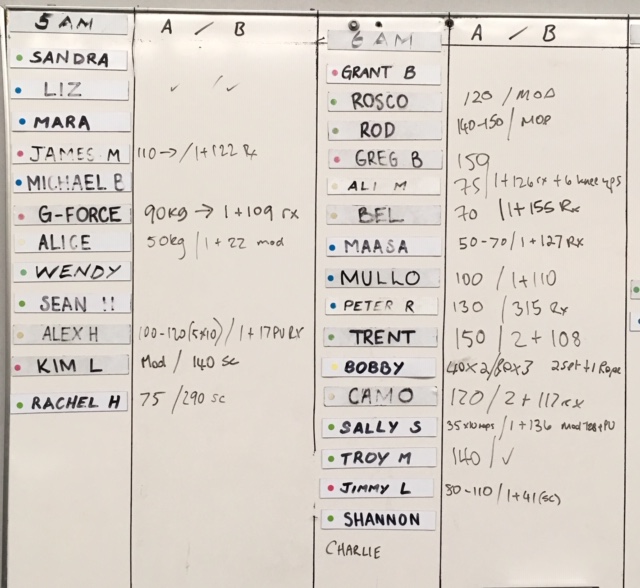 5 AM A / B
SANDRA
LIZ ✓ / ✓
MARA
JAMES M 110 → / 1+122 Rx
MICHAEL B
G-FORCE 90kg → 1+109 rx
ALICE 50kg / 1+22 mod
WENDY
SEAN H
ALEX H 100-120 (5x10) / 1+17PU RX
KIM L Mod / 140 sc
RACHEL H 75 / 290 sc
6 AM A / B
GRANT B
ROSCO 120 / MOD
ROD 140-150 / MOD
GREG B 150
ALI M 75 / 1+126 rx +6 knee ups
BEL 70 / 1+155 Rx
MAASA 50-70 / 1+127 Rx
MULLO 100 / 1+110
PETER R 130 / 315 Rx
TRENT 150 / 2+108
BOBBY 40x2/ 2set +1 Rope
CAMO 120 / 2+112 rx
SALLY S 35x10reps / 1+136 mod
TROY M 140 / ✓
JIMMY L 80-110 / 1+41 (sc)
SHANNON
CHARLIE